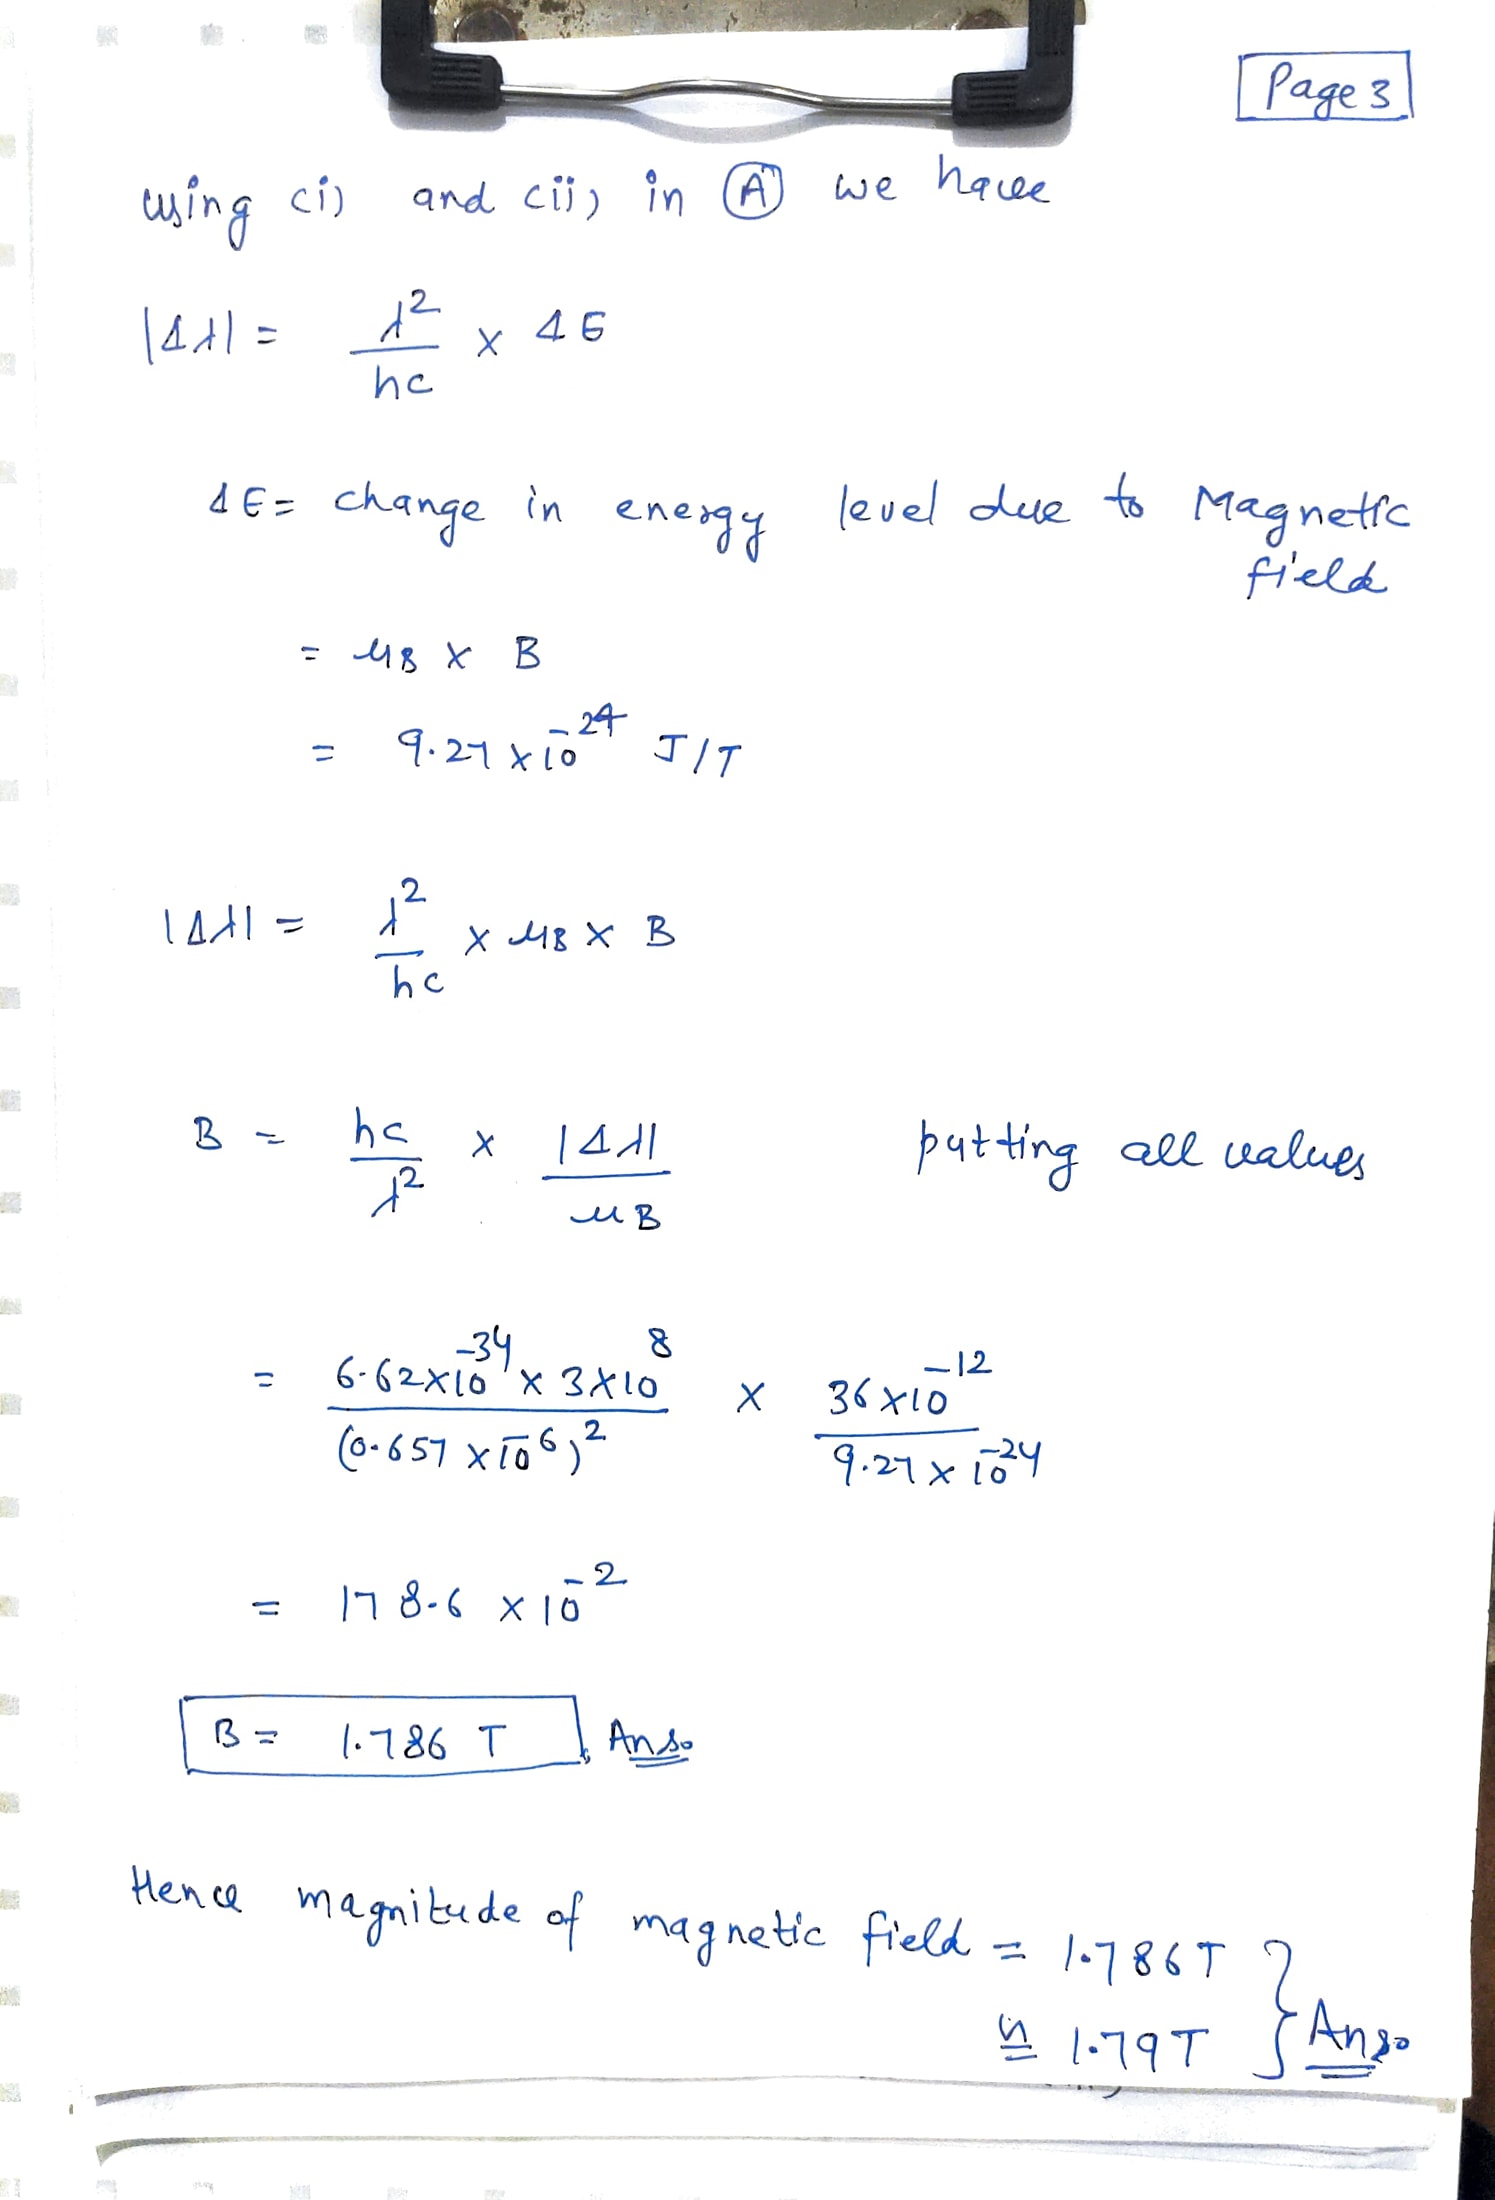 Page 3
using (i) and (ii) in Ⓐ we have
|Δλ| = λ²/hc × ΔE
ΔE = change in energy level due to Magnetic
field
= μB × B
= 9.27 × 10⁻²⁴ J/T
|Δλ| = λ²/hc × μB × B
B = hc/λ² × |Δλ|/μB putting all values
= 6.62×10⁻³⁴ × 3×10⁸/(0.657 × 10⁻⁶)² × 36×10⁻¹²/9.27 × 10⁻²⁴
= 178.6 × 10⁻²
B = 1.786 T Ans.
Hence magnitude of magnetic field = 1.786T
≅ 1.79T } Ans.